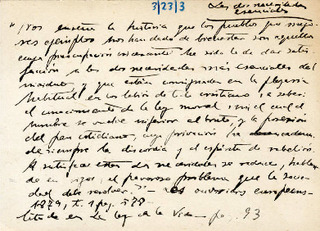 7/23/3
Las dos necesidades
esenciales
"Nos enseña la historia que los pueblos que mayo-
res ejemplos nos han dado de bienestar son aquellos
cuya preocupación incesante ha sido la de dar satis-
facción a las dos necesidades más esenciales del
individuo y que están consignadas en la plegaria
habitual en los labios de los cristianos, a saber:
el conocimiento de la ley moral sin el cual el
hombre se vuelve inferior al bruto, y la posesión
del pan cotidiano, cuya privación ha
siempre la discordia y el espíritu de rebelión.
A satisfacer estas dos necesidades se reduce, hablan-
do en rigor, el pavoroso problema que la socie-
dad debe resolver." — Les ouvriers européens
1879, t. 1 pag. 578
Cita de en La ley de la Vida — pg. 93